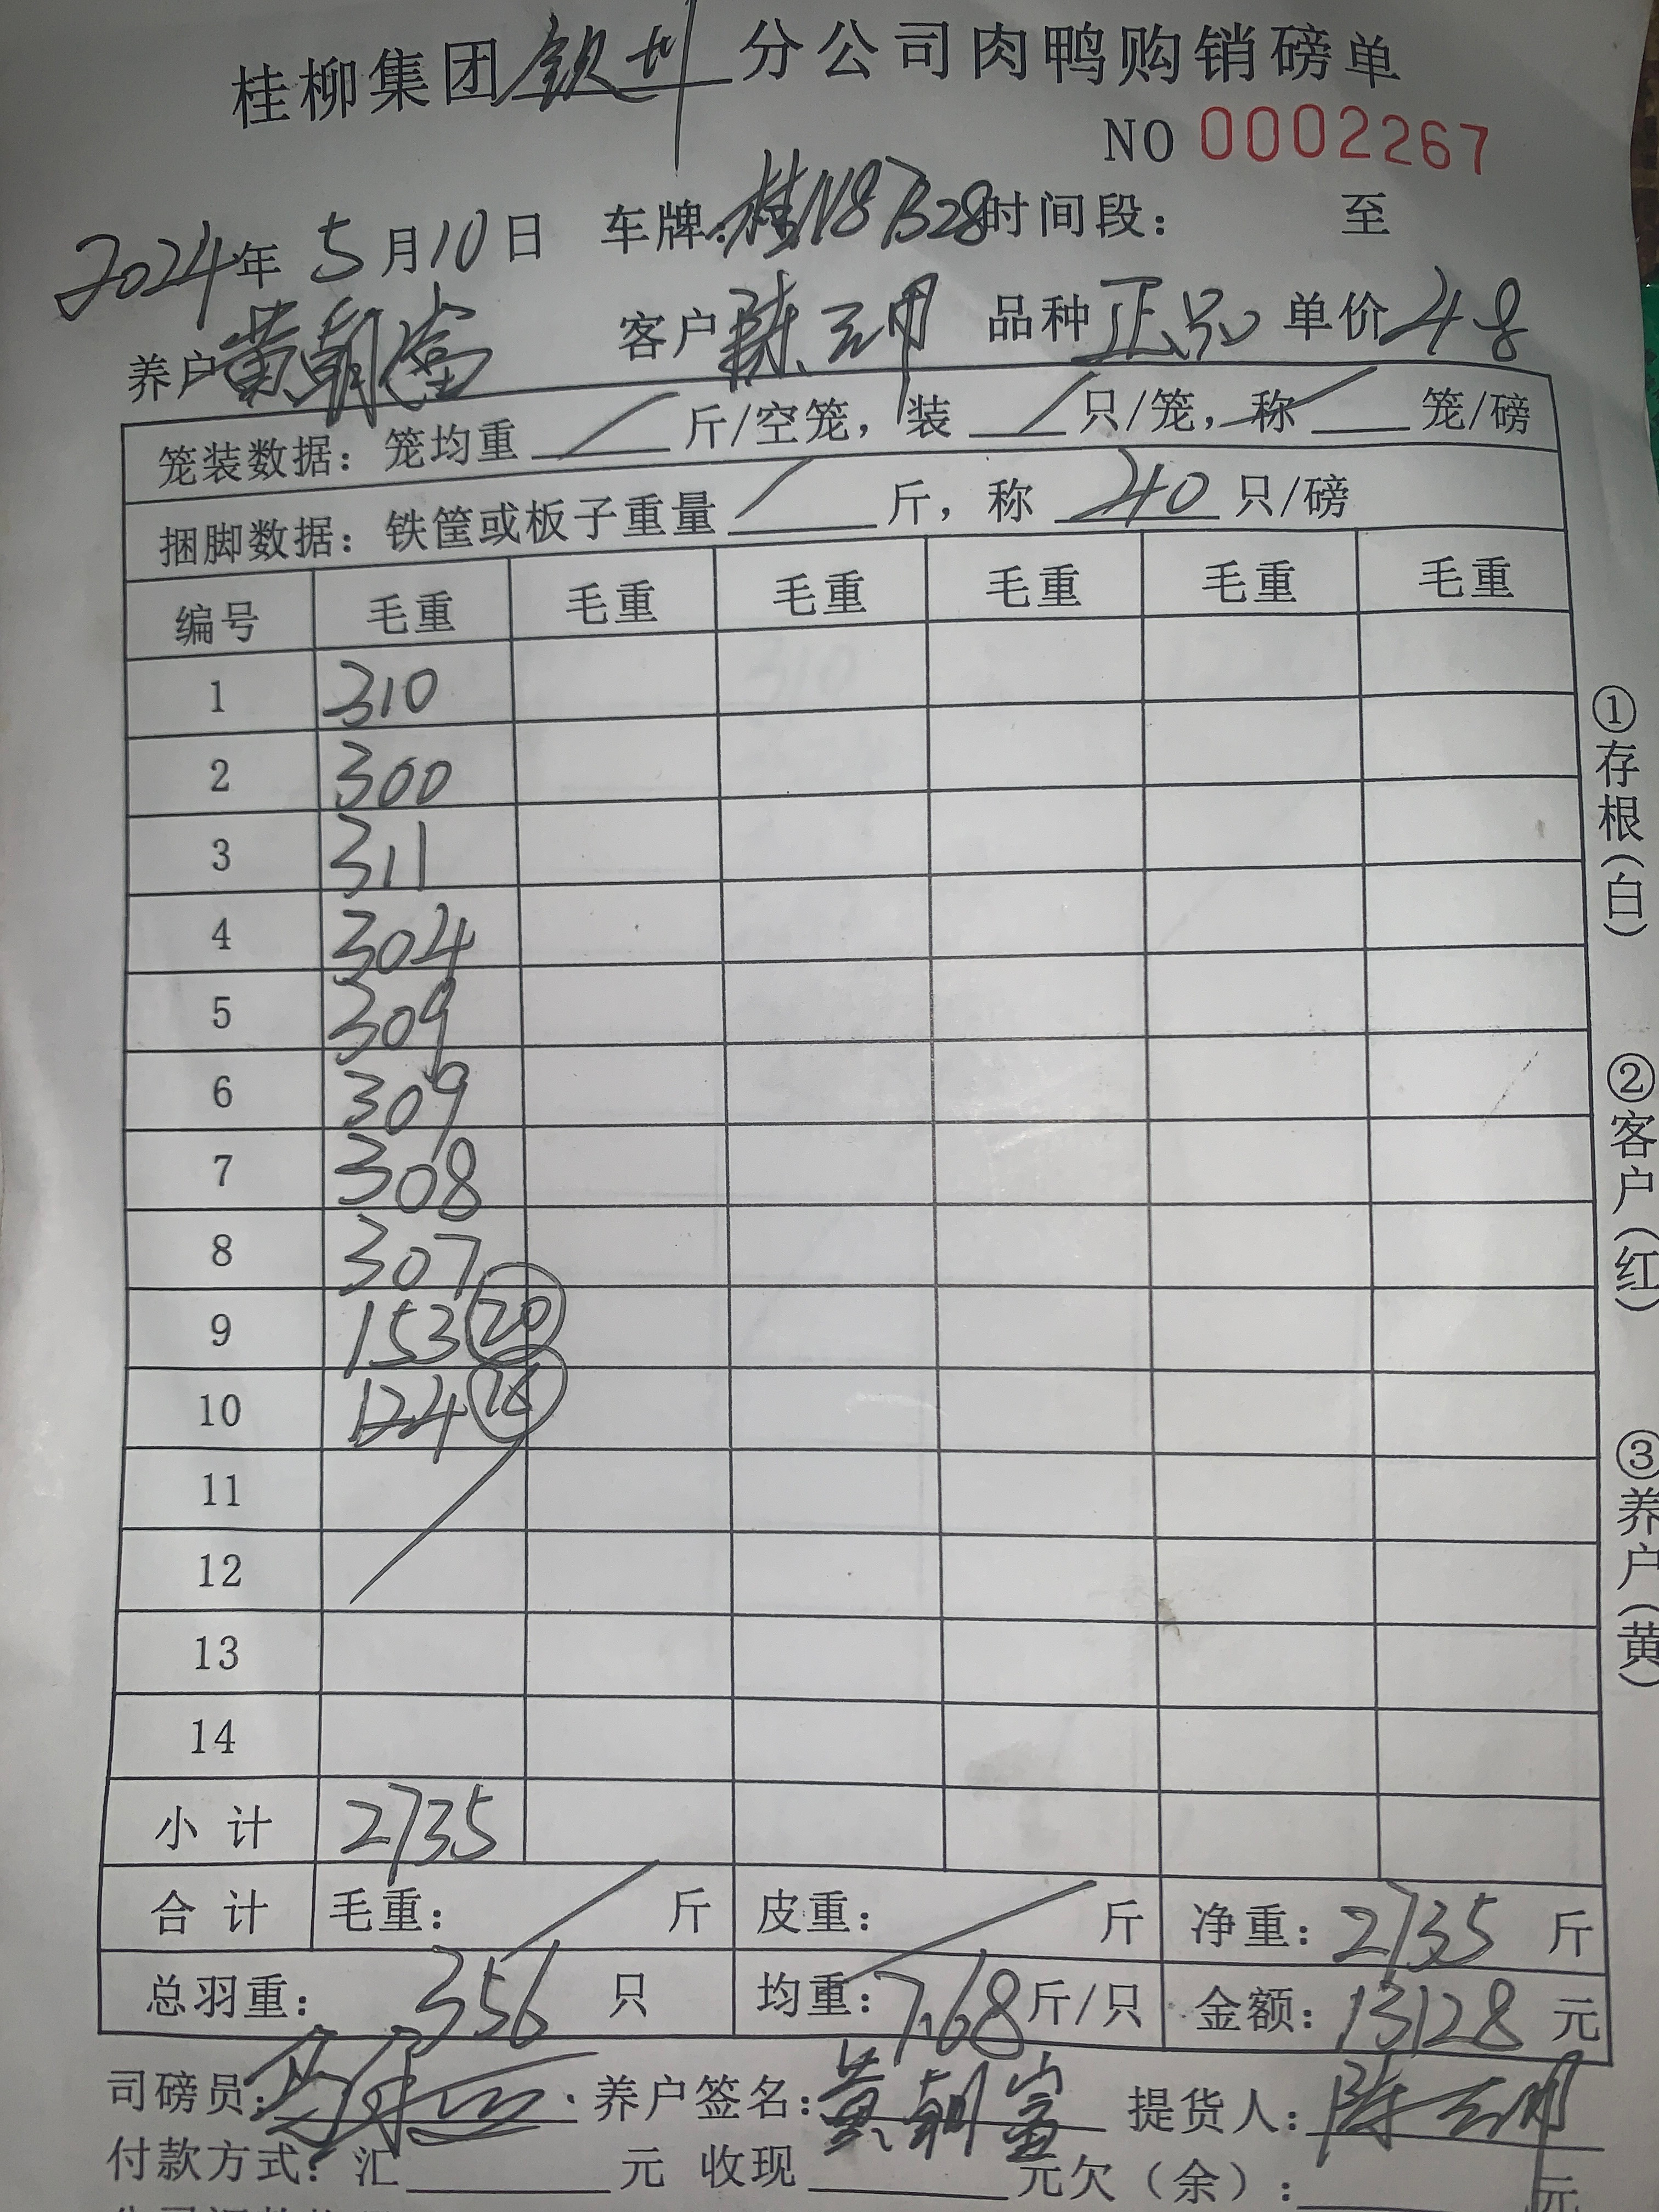 桂柳集团钦州分公司肉鸭购销磅单
NO 0002267
2024年5月10日 车牌:桂N87B28时间段: 至
养户黄朝富 客户陈云明 品种正品 单价4.8
笼装数据:笼均重 斤/空笼,装 只/笼,称 笼/磅
捆脚数据:铁筐或板子重量 斤,称 40 只/磅
编号 毛重 毛重 毛重 毛重 毛重 毛重
1 310
2 300
3 311
4 304
5 309
6 309
7 308
8 307
9 153 20
10 124 16
11
12
13
14
小计 2735
合计 毛重: 斤 皮重: 斤 净重:2735斤
总羽重:356只 均重:7.68斤/只 金额:13128元
司磅员: 养户签名:黄朝富 提货人:陈云明
付款方式:汇 元 收现 元欠(余): 元
①存根(白)
②客户(红)
③养户(黄)